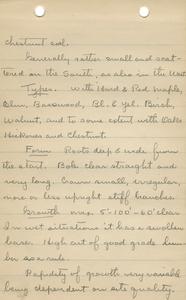 Chestnut soil.
Generally rather small and scat-
tered on the South, as also in the West
Types. With Hard & Red Maple,
Elm, Basswood, Bl. & Yel. Birch,
Walnut, and to some extent with Oaks
Hickories and Chestnut.
Form Roots deep & wide from
the start. Bole clear straight and
very long. Crown small, irregular,
more or less upright stiff branches.
Growth max. 5'-100'-60' clear
In wet situations it has a swollen
base. High cut of good grade lum-
ber as a rule.
Rapidity of growth very variable
being dependent on site quality.